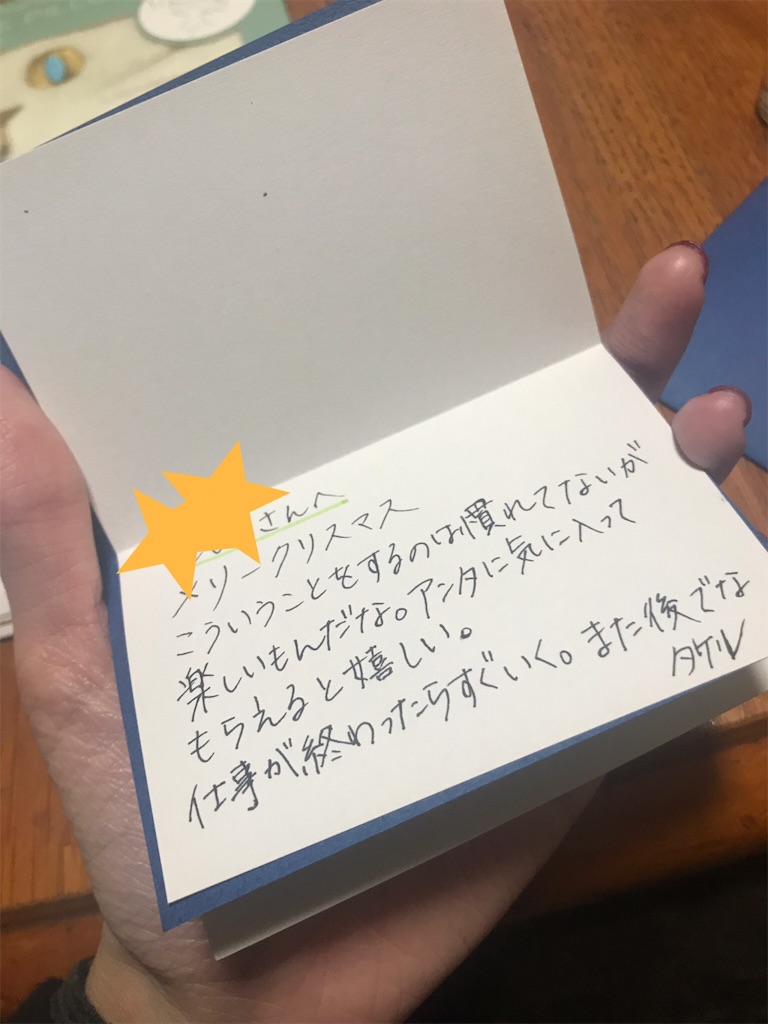 さんへ
メリークリスマス
こういうことをするのは慣れてないが
楽しいもんだな。アンタに気に入って
もらえると嬉しい。
仕事が終わったらすぐいく。また後でな
タケル